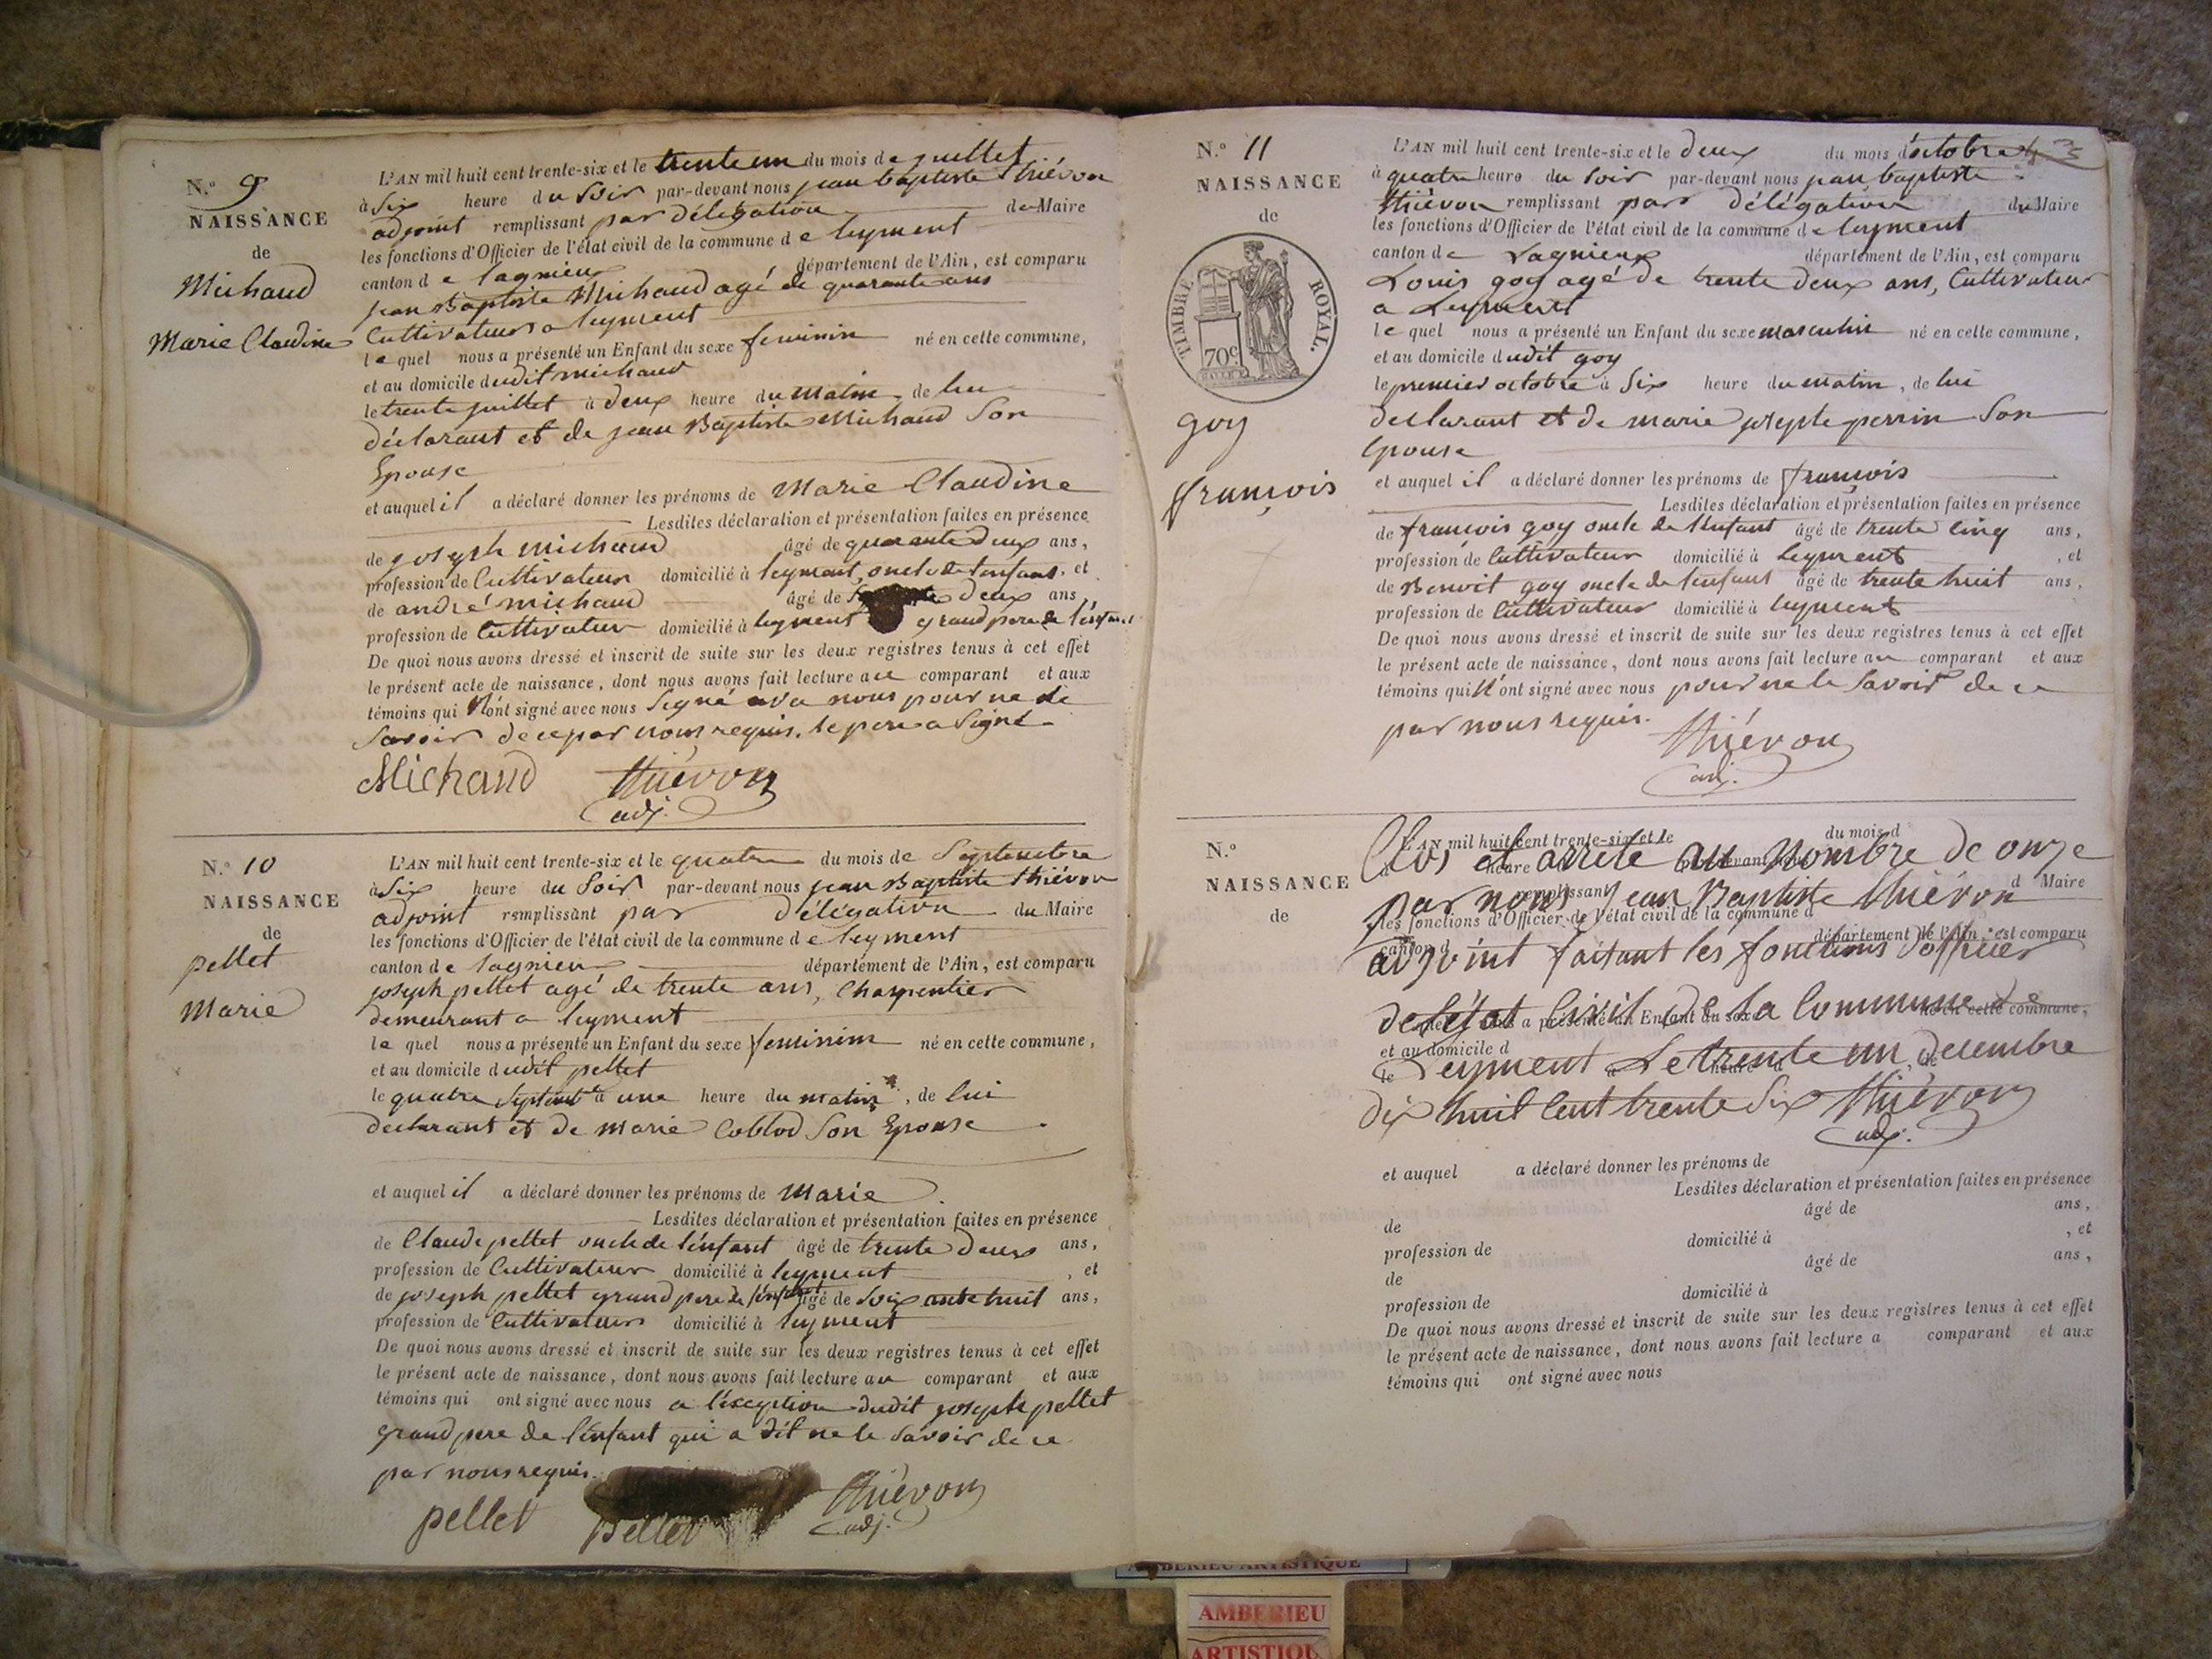 N.° 9
NAISSANCE
de
Michaud
Marie Claudine
L'AN mil huit cent trente-six et le trente un du mois de juillet
à Six heure du Soir par-devant nous jean baptiste thiévon
adjoint remplissant par délégation du Maire
les fonctions d'Officier de l'état civil de la commune de leyment
canton de lagnieu département de l'Ain, est comparu
jean Baptiste Michaud agé de quarante ans
Cultivateur a leyment
le quel nous a présenté un Enfant du sexe feminin né en cette commune,
et au domicile dudit michaud
le trente juillet à deux heure du matin, de lui
déclarant et de jean Baptiste Michaud Son
Epouse
et auquel il a déclaré donner les prénoms de Marie Claudine
Lesdites déclaration et présentation faites en présence
de joseph michaud âgé de quarante deux ans,
profession de Cultivateur domicilié à leyment, oncle de l'enfant, et
de andré michaud âgé de deux ans,
profession de Cultivateur domicilié à leyment grand pere de l'enfant
De quoi nous avons dressé et inscrit de suite sur les deux registres tenus à cet effet
le présent acte de naissance, dont nous avons fait lecture au comparant et aux
témoins qui n'ont signé avec nous Signé avec nous pour ne le
Savoir de ce par nous requis. le pere a Signé
Michaud thiévon
adj.
N.° 10
NAISSANCE
de
pellet
Marie
L'AN mil huit cent trente-six et le quatre du mois de Septembre
à Six heure du Soir par-devant nous jean Baptiste thiévon
adjoint remplissant par délégation du Maire
les fonctions d'Officier de l'état civil de la commune de leyment
canton de lagnieu département de l'Ain, est comparu
joseph pellet agé de trente ans, Charpentier
demeurant a leyment
le quel nous a présenté un Enfant du sexe feminin né en cette commune,
et au domicile dudit pellet
le quatre Septembre à une heure du matin, de lui
declarant et de marie Coblod Son Epouse
et auquel il a déclaré donner les prénoms de Marie
Lesdites déclaration et présentation faites en présence
de Claude pellet oncle de l'enfant âgé de trente deux ans,
profession de Cultivateur domicilié à leyment, et
de joseph pellet grand pere de l'enfant âgé de Soixante huit ans,
profession de Cultivateur domicilié à leyment
De quoi nous avons dressé et inscrit de suite sur les deux registres tenus à cet effet
le présent acte de naissance, dont nous avons fait lecture au comparant et aux
témoins qui ont signé avec nous a l'éxception dudit joseph pellet
grand pere de l'enfant qui a dit ne le Savoir de ce
par nous requis.
pellet pellet thiévon
adj.
N.° 11
NAISSANCE
de
TIMBRE ROYAL.
70c
goy
françois
L'AN mil huit cent trente-six et le deux du mois d'octobre
à quatre heure du Soir par-devant nous jean baptiste
thiévon remplissant par délégation du Maire
les fonctions d'Officier de l'état civil de la commune de leyment
canton de Lagnieu département de l'Ain, est comparu
Louis goy agé de trente deux ans, Cultivateur
a Leyment
le quel nous a présenté un Enfant du sexe masculin né en cette commune,
et au domicile dudit goy
le premier octobre à Six heure du matin, de lui
declarant et de marie josepte perrin Son
Epouse
et auquel il a déclaré donner les prénoms de françois
Lesdites déclaration et présentation faites en présence
de françois goy oncle de l'enfant âgé de trente cinq ans,
profession de Cultivateur domicilié à leyment, et
de Benoit goy oncle de l'enfant âgé de trente huit ans,
profession de Cultivateur domicilié à leyment
De quoi nous avons dressé et inscrit de suite sur les deux registres tenus à cet effet
le présent acte de naissance, dont nous avons fait lecture au comparant et aux
témoins qui n'ont signé avec nous pour ne le Savoir de ce
par nous requis.
thiévon
adj.
N.°
NAISSANCE
de
L'AN mil huit cent trente-six et le du mois d
Clos et arreté au nombre de onze
par nous jean Baptiste thiévon
d Maire
les fonctions d'Officier de l'état civil de la commune d
département de l'Ain, est comparu
adjoint faisant les fonctions d'officier
de l'état Civil de la Commune de
nous a présenté un Enfant du sexe né en cette commune,
et au domicile d
Leyment Le trente un decembre
dix huit cent trente Six thiévon
adj.
et auquel a déclaré donner les prénoms de
Lesdites déclaration et présentation faites en présence
de âgé de ans,
profession de domicilié à , et
de âgé de ans,
profession de domicilié à
De quoi nous avons dressé et inscrit de suite sur les deux registres tenus à cet effet
le présent acte de naissance, dont nous avons fait lecture a comparant et aux
témoins qui ont signé avec nous
AMBERIEU ARTISTIQUE
AMBERIEU
ARTISTIQU